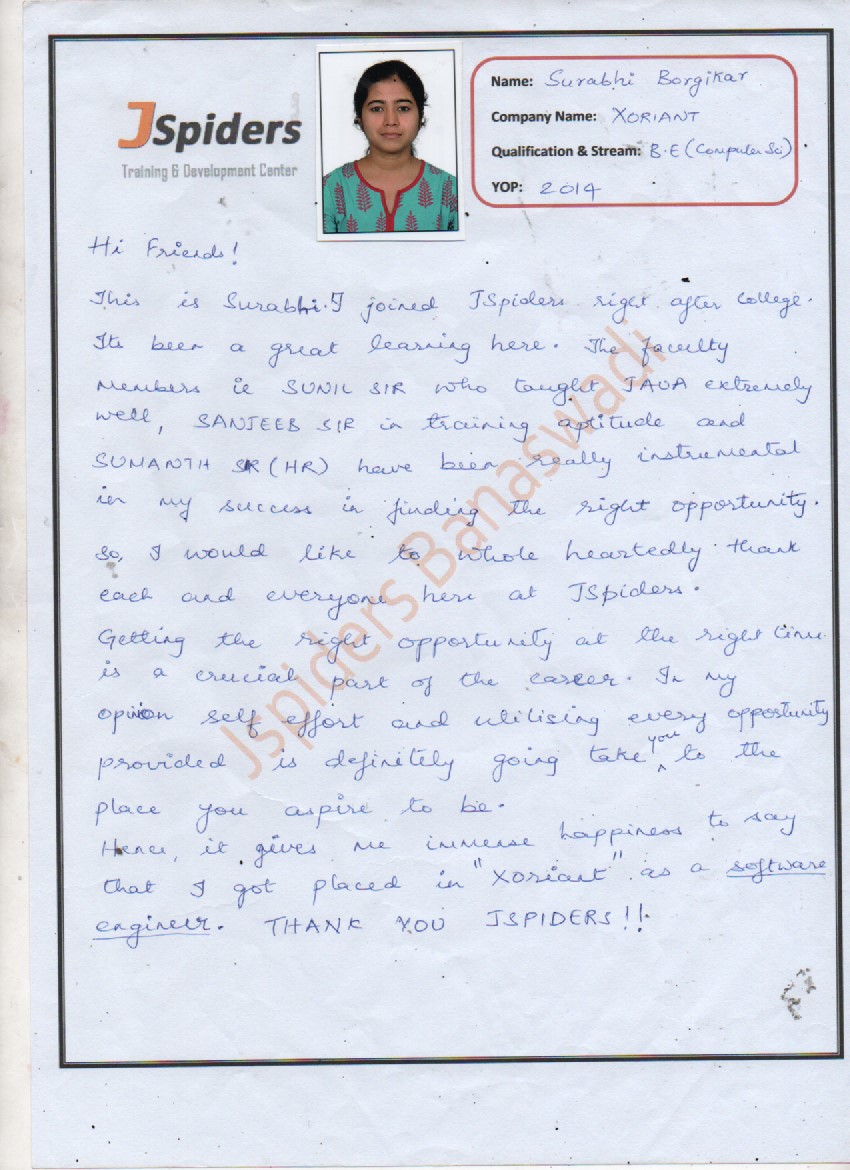 JSpiders
Training & Development Center
Name: Surabhi Borgikar
Company Name: XORIANT
Qualification & Stream: B.E (Computer Sci)
YOP: 2014
Hi Friends!
This is Surabhi. I joined JSpiders right after college.
Its been a great learning here. The faculty
members ie SUNIL SIR who taught JAVA extremely
well, SANJEEB SIR in training aptitude and
SUMANTH SIR (HR) have been really instrumental
in my success in finding the right opportunity.
So, I would like to whole heartedly thank
each and everyone here at JSpiders.
Getting the right opportunity at the right time
is a crucial part of the career. In my
opinion self effort and utilising every opportunity
provided is definitely going take you to the
place you aspire to be.
Hence, it gives me immense happiness to say
that I got placed in "Xoriant" as a software
engineer. THANK YOU JSPIDERS!!
Jspiders Banaswadi